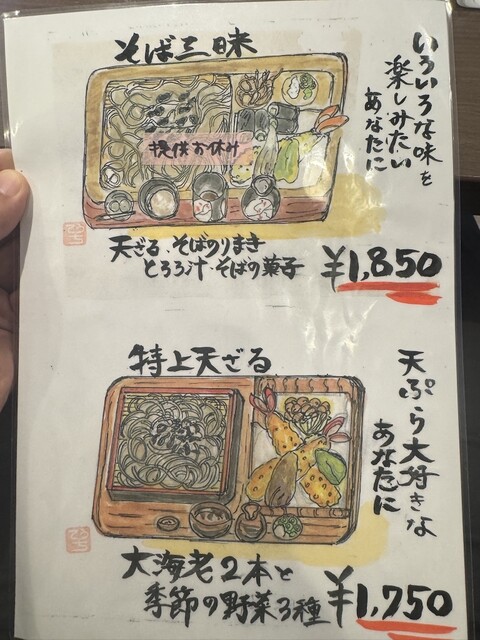 そば三昧
いろいろな味を
楽しみたい
あなたに
提供お休み
天ざる・そばのりまき
とろろ汁・そばの菓子
¥1,850
特上天ざる
天ぷら大好きな
あなたに
大海老2本と
季節の野菜3種
¥1,750